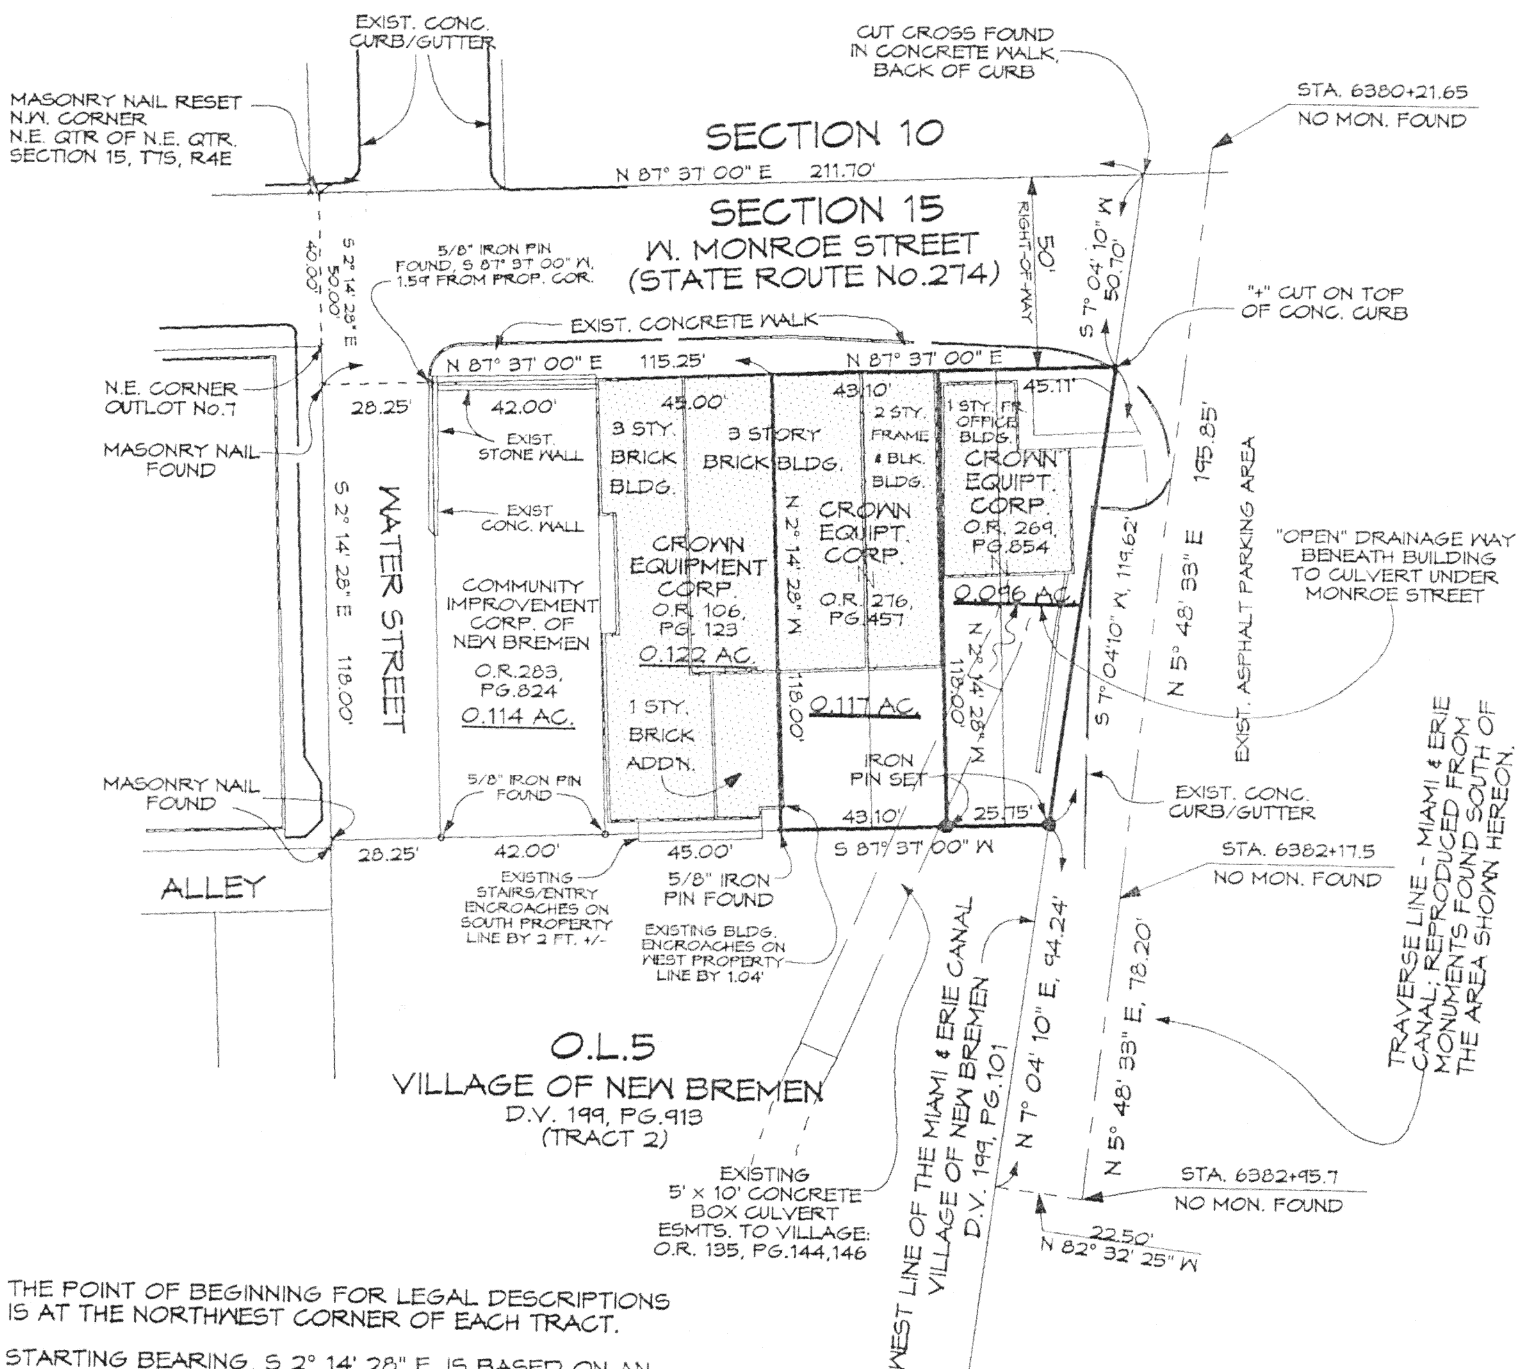 EXIST. CONC.
CURB/GUTTER
CUT CROSS FOUND
IN CONCRETE WALK,
BACK OF CURB
MASONRY NAIL RESET
N.W. CORNER
N.E. QTR OF N.E. QTR.
SECTION 15, T7S, R4E
STA. 6380+21.65
NO MON. FOUND
SECTION 10
N 87° 37' 00" E 211.70'
SECTION 15
W. MONROE STREET
(STATE ROUTE No.274)
5/8" IRON PIN
FOUND, S 87° 37' 00" W,
1.59' FROM PROP. COR.
S 2° 14' 28" E
50.00'
40.00'
50'
RIGHT-OF-WAY
S 7° 04' 10" W
50.70'
"+" CUT ON TOP
OF CONC. CURB
EXIST. CONCRETE WALK
N 87° 37' 00" E 115.25'
N 87° 37' 00" E
N.E. CORNER
OUTLOT No.7
MASONRY NAIL
FOUND
28.25'
42.00'
45.00'
43.10'
45.11'
EXIST.
STONE WALL
EXIST
CONC. WALL
3 STY.
BRICK
BLDG.
3 STORY
BRICK BLDG.
2 STY.
FRAME
& BLK.
BLDG.
1 STY. FR.
OFFICE
BLDG.
CROWN
EQUIPT.
CORP.
O.R. 269,
PG.854
0.096 AC.
CROWN
EQUIPT.
CORP.
O.R. 276,
PG.457
0.117 AC.
CROWN
EQUIPMENT
CORP.
O.R. 106,
PG. 123
0.122 AC.
COMMUNITY
IMPROVEMENT
CORP. OF
NEW BREMEN
O.R.283,
PG.824
0.114 AC.
WATER STREET
S 2° 14' 28" E 118.00'
N 2° 14' 28" W
118.00'
N 2° 14' 28" W
118.00'
S 7° 04'10" W, 119.62'
N 5° 48' 33" E 195.85'
EXIST. ASPHALT PARKING AREA
"OPEN" DRAINAGE WAY
BENEATH BUILDING
TO CULVERT UNDER
MONROE STREET
1 STY.
BRICK
ADD'N.
IRON
PIN SET
MASONRY NAIL
FOUND
5/8" IRON PIN
FOUND
EXIST. CONC.
CURB/GUTTER
28.25'
42.00'
45.00'
43.10'
25.75'
S 87° 37' 00" W
STA. 6382+17.5
NO MON. FOUND
ALLEY
EXISTING
STAIRS/ENTRY
ENCROACHES ON
SOUTH PROPERTY
LINE BY 2 FT. +/-
5/8" IRON
PIN FOUND
EXISTING BLDG.
ENCROACHES ON
WEST PROPERTY
LINE BY 1.04'
TRAVERSE LINE - MIAMI & ERIE
CANAL; REPRODUCED FROM
MONUMENTS FOUND SOUTH OF
THE AREA SHOWN HEREON.
O.L.5
VILLAGE OF NEW BREMEN
D.V. 199, PG.913
(TRACT 2)
WEST LINE OF THE MIAMI & ERIE CANAL
VILLAGE OF NEW BREMEN
D.V. 199, PG.101
N 7° 04' 10" E, 94.24'
N 5° 48' 33" E, 78.20'
EXISTING
5' x 10' CONCRETE
BOX CULVERT
ESMTS. TO VILLAGE:
O.R. 135, PG.144,146
STA. 6382+95.7
NO MON. FOUND
22.50'
N 82° 32' 25" W
THE POINT OF BEGINNING FOR LEGAL DESCRIPTIONS
IS AT THE NORTHWEST CORNER OF EACH TRACT.
STARTING BEARING, S 2° 14' 28" E, IS BASED ON AN